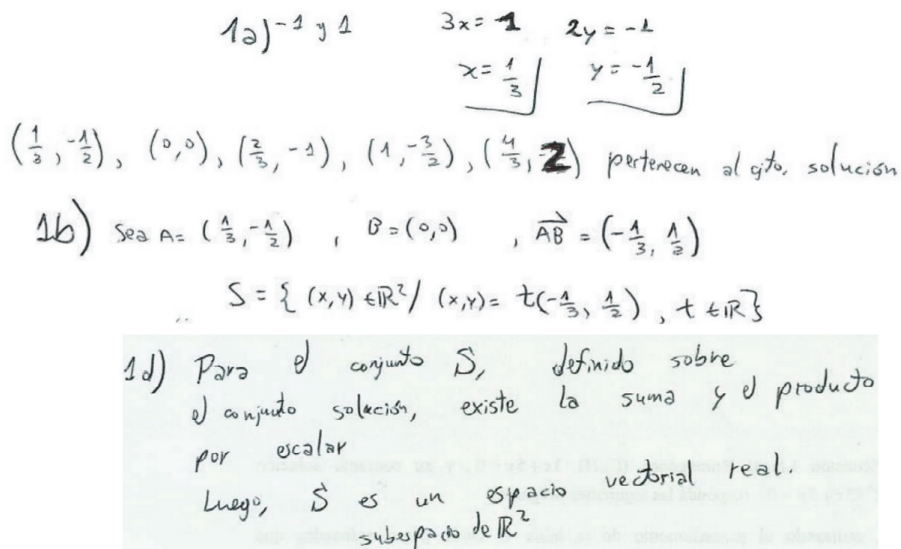 1a) -1 y 1 3x = 1 2y = -1
x = 1/3 y = -1/2
(1/3, -1/2), (0,0), (2/3, -1), (1, -3/2), (4/3, -2) pertenecen al cjto. solución
1b) Sea A = (1/3, -1/2) , B = (0,0) , AB = (-1/3, 1/2)
S = { (x,y) ∈ ℝ² / (x,y) = t(-1/3, 1/2) , t ∈ ℝ }
1d) Para el conjunto S, definido sobre
el conjunto solución, existe la suma y el producto
por escalar
Luego, S es un espacio vectorial real.
subespacio de ℝ²